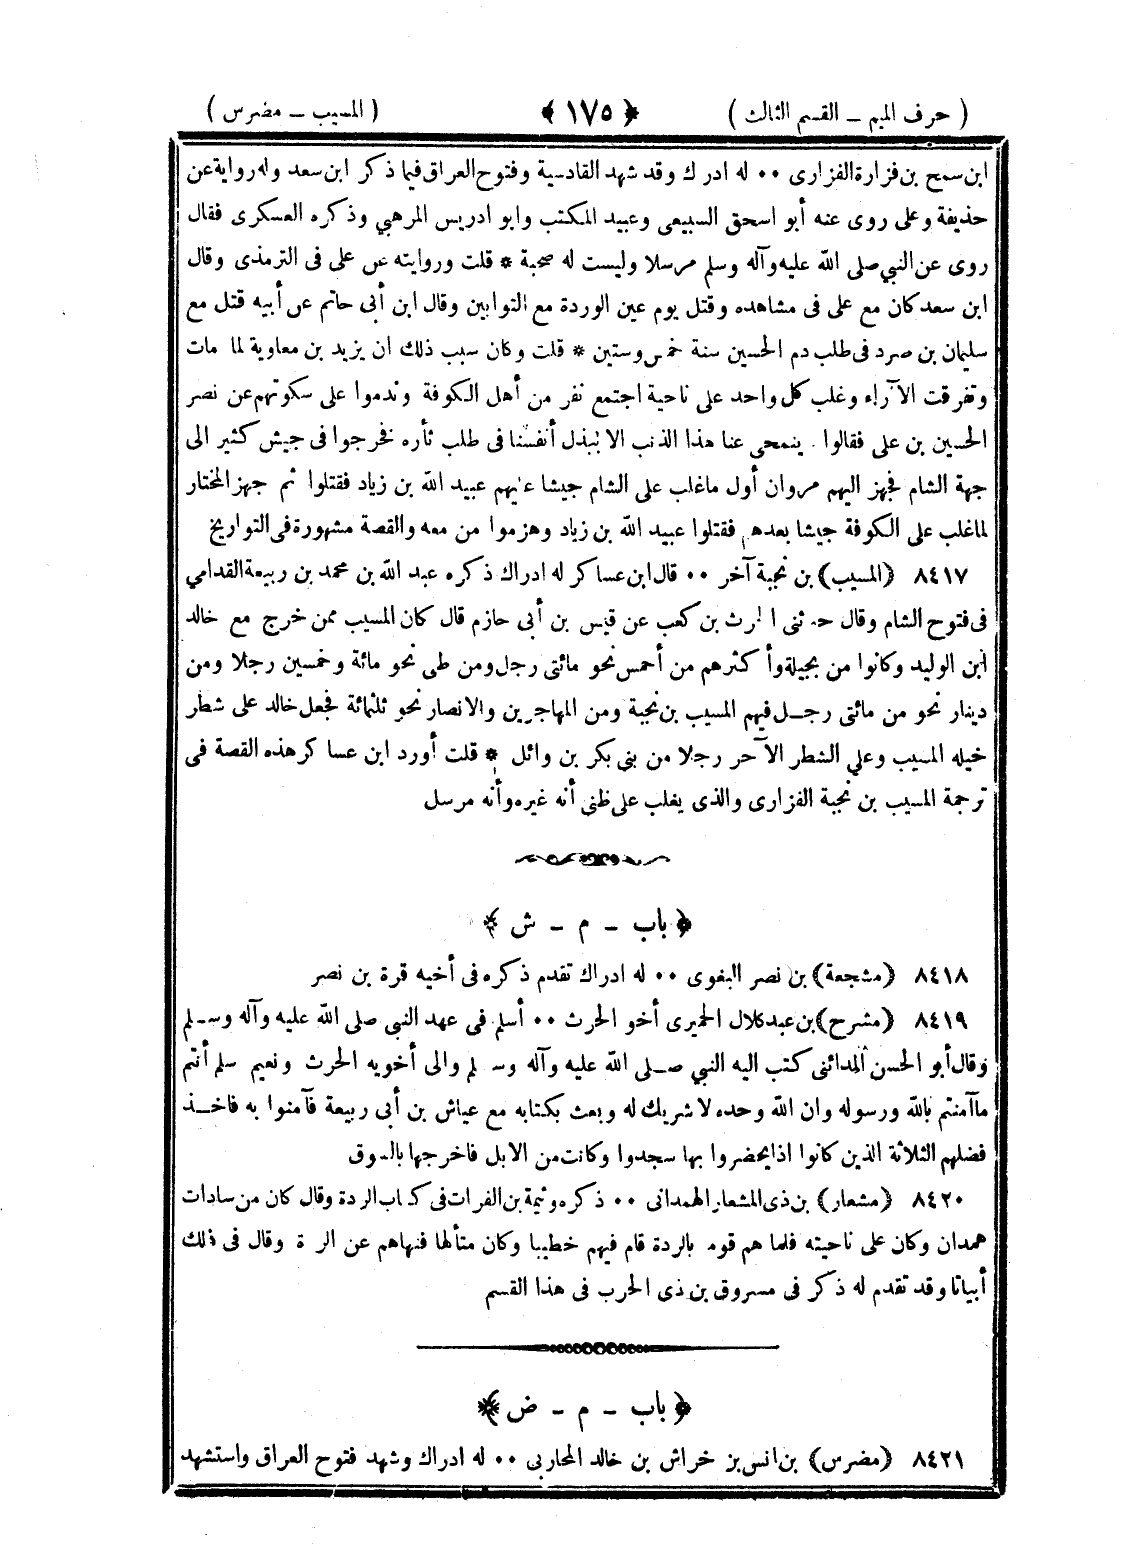 ( حرف الميم ــ القسم الثالث ) ﴿ ١٧٥ ﴾ ( المسيب ــ مضرس )
ابن سمح بن فزارة الفزارى ٠٠ له ادرك وقد شهد القادسية وفتوح العراق فيما ذكر ابن سعد وله رواية عن
حذيفة وعلى روى عنه أبو اسحق السبيعى وعبيد المكتب وابو ادريس المرهبي وذكره العسكرى فقال
روى عن النبي صلى الله عليه وآله وسلم مرسلا وليست له صحبة * قلت وروايته عن على فى الترمذى وقال
ابن سعد كان مع على فى مشاهده وقتل يوم عين الوردة مع التوابين وقال ابن أبى حاتم عن أبيه قتل مع
سليمان بن صرد فى طلب دم الحسين سنة خمس وستين * قلت وكان سبب ذلك ان يزيد بن معاوية لما مات
وتفرقت الآراء وغلب كل واحد على ناحية اجتمع نفر من أهل الكوفة وندموا على سكوتهم عن نصر
الحسين بن على فقالوا ينمحى عنا هذا الذنب الا ببذل أنفسنا فى طلب ثأره فخرجوا فى جيش كثير الى
جهة الشام فجهز اليهم مروان أول ماغلب على الشام جيشا عليهم عبيد الله بن زياد فقتلوا ثم جهز المختار
لماغلب على الكوفة جيشا بعدهم فقتلوا عبيد الله بن زياد وهزموا من معه والقصة مشهورة فى التواريخ
٨٤١٧ (المسيب) بن نجبة آخر ٠٠ قال ابن عساكر له ادراك ذكره عبد الله بن محمد بن ربيعة القدامي
فى فتوح الشام وقال حدثنى الحرث بن كعب عن قيس بن أبى حازم قال كان المسيب ممن خرج مع خالد
ابن الوليد وكانوا من بجيلة وأكثرهم من أحمس نحو مائتى رجل ومن طي نحو مائة وخمسين رجلا ومن
دينار نحو من مائتى رجــل فيهم المسيب بن نجبة ومن المهاجرين والانصار نحو ثلثمائة فجعل خالد على شطر
خيله المسيب وعلي الشطر الآخر رجلا من بني بكر بن وائل * قلت أورد ابن عساكر هذه القصة فى
ترجمة المسيب بن نجبة الفزارى والذى يغلب على ظنى أنه غيره وأنه مرسل
﴿ باب ــ م ــ ش ﴾
٨٤١٨ (مشجعة) بن نصر البغوى ٠٠ له ادراك تقدم ذكره فى أخيه قرة بن نصر
٨٤١٩ (مشرح) بن عبد كلال الحميرى أخو الحرث ٠٠ أسلم فى عهد النبي صلى الله عليه وآله وسـلم
وقال أبو الحسن المدائنى كتب اليه النبي صـلى الله عليه وآله وسـلم والى أخويه الحرث ونعيم سلم أنتم
ماآمنتم بالله ورسوله وان الله وحده لا شريك له وبعث بكتابه مع عياش بن أبى ربيعة فآمنوا به فاخــذ
فضلهم الثلاثة الذين كانوا اذا يحضروا بها سجدوا وكانت من الابل فاخرجها بالسوق
٨٤٢٠ (مشعار) بن ذى المشعار الهمدانى ٠٠ ذكره وثيمة بن الفرات فى كتاب الردة وقال كان من سادات
همدان وكان على ناحيته فلما هم قومه بالردة قام فيهم خطيبا وكان متألها فنهاهم عن الردة وقال فى ذلك
أبياتا وقد تقدم له ذكر فى مسروق بن ذى الحرب فى هذا القسم
﴿ باب ــ م ــ ض ﴾
٨٤٢١ (مضرس) بن انس بن خراش بن خالد المحاربي ٠٠ له ادراك وشهد فتوح العراق واستشهد